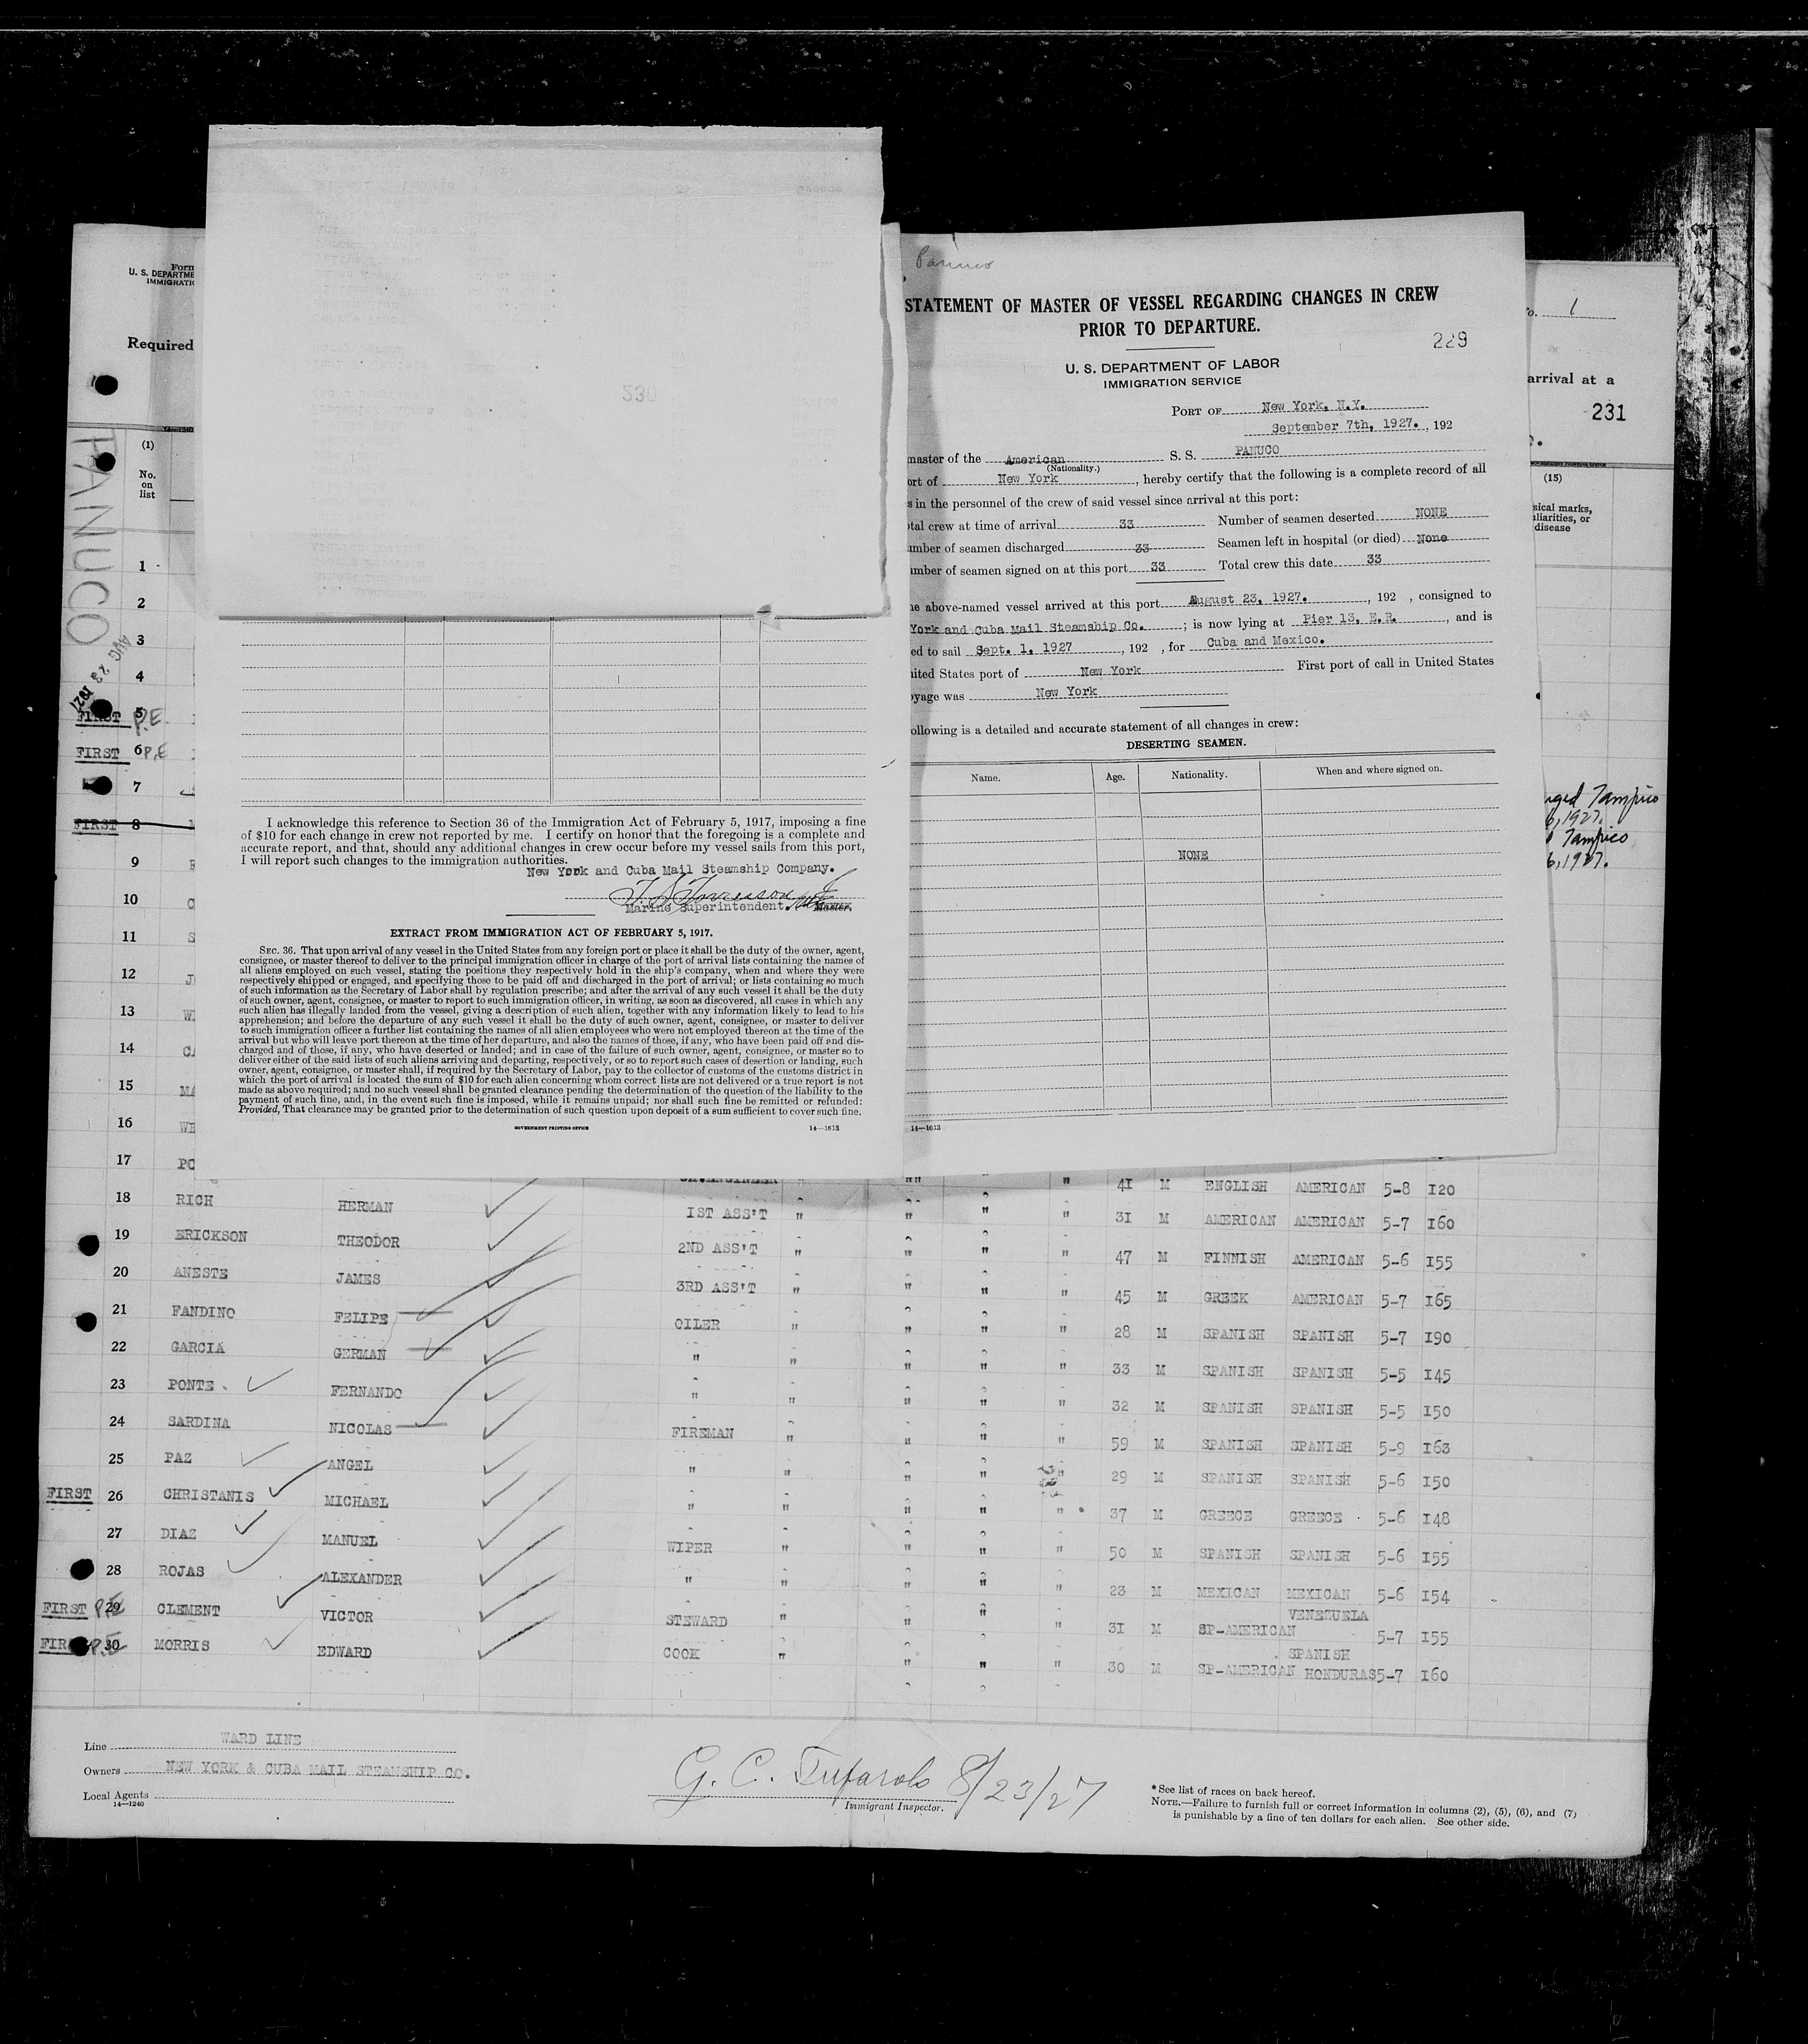 Panuco
STATEMENT OF MASTER OF VESSEL REGARDING CHANGES IN CREW
PRIOR TO DEPARTURE.
229
U. S. DEPARTMENT OF LABOR
IMMIGRATION SERVICE
PORT OF New York, N.Y.
September 7th, 1927. , 192
master of the American S. S. PANUCO
(Nationality.)
ort of New York , hereby certify that the following is a complete record of all
s in the personnel of the crew of said vessel since arrival at this port:
otal crew at time of arrival 33 Number of seamen deserted NONE
umber of seamen discharged 33 Seamen left in hospital (or died) None
umber of seamen signed on at this port 33 Total crew this date 33
he above-named vessel arrived at this port August 23, 1927. , 192 , consigned to
York and Cuba Mail Steamship Co. ; is now lying at Pier 13, E.R. , and is
ed to sail Sept. 1, 1927 , 192 , for Cuba and Mexico.
nited States port of New York First port of call in United States
oyage was New York
ollowing is a detailed and accurate statement of all changes in crew:
DESERTING SEAMEN.
Name. Age. Nationality. When and where signed on.
NONE
14—1613
230
I acknowledge this reference to Section 36 of the Immigration Act of February 5, 1917, imposing a fine
of $10 for each change in crew not reported by me. I certify on honor that the foregoing is a complete and
accurate report, and that, should any additional changes in crew occur before my vessel sails from this port,
I will report such changes to the immigration authorities.
New York and Cuba Mail Steamship Company.
Marine Superintendent. Master.
EXTRACT FROM IMMIGRATION ACT OF FEBRUARY 5, 1917.
SEC. 36. That upon arrival of any vessel in the United States from any foreign port or place it shall be the duty of the owner, agent,
consignee, or master thereof to deliver to the principal immigration officer in charge of the port of arrival lists containing the names of
all aliens employed on such vessel, stating the positions they respectively hold in the ship's company, when and where they were
respectively shipped or engaged, and specifying those to be paid off and discharged in the port of arrival; or lists containing so much
of such information as the Secretary of Labor shall by regulation prescribe; and after the arrival of any such vessel it shall be the duty
of such owner, agent, consignee, or master to report to such immigration officer, in writing, as soon as discovered, all cases in which any
such alien has illegally landed from the vessel, giving a description of such alien, together with any information likely to lead to his
apprehension; and before the departure of any such vessel it shall be the duty of such owner, agent, consignee, or master to deliver
to such immigration officer a further list containing the names of all alien employees who were not employed thereon at the time of the
arrival but who will leave port thereon at the time of her departure, and also the names of those, if any, who have been paid off and dis-
charged and of those, if any, who have deserted or landed; and in case of the failure of such owner, agent, consignee, or master so to
deliver either of the said lists of such aliens arriving and departing, respectively, or so to report such cases of desertion or landing, such
owner, agent, consignee, or master shall, if required by the Secretary of Labor, pay to the collector of customs of the customs district in
which the port of arrival is located the sum of $10 for each alien concerning whom correct lists are not delivered or a true report is not
made as above required; and no such vessel shall be granted clearance pending the determination of the question of the liability to the
payment of such fine, and, in the event such fine is imposed, while it remains unpaid; nor shall such fine be remitted or refunded:
Provided, That clearance may be granted prior to the determination of such question upon deposit of a sum sufficient to cover such fine.
GOVERNMENT PRINTING OFFICE 14—1613
Form
U. S. DEPARTME
IMMIGRATIO
Required
o. 1
arrival at a
231
(1)
No.
on
list
(15)
sical marks,
uliarities, or
disease
PANUCO
AUG 23 1927
1
2
3
4
FIRST 5 P.E
FIRST 6 P.E
7
FIRST 8
9
10
11
12
13
14
15
16
17
nged Tampico
6, 1927.
Tampico
6, 1927.
18 RICH HERMAN 1ST ASS'T " " " " 31 M AMERICAN AMERICAN 5-7 160
41 M ENGLISH AMERICAN 5-8 120
19 ERICKSON THEODOR 2ND ASS'T " " " " 47 M FINNISH AMERICAN 5-6 155
20 ANESTE JAMES 3RD ASS'T " " " " 45 M GREEK AMERICAN 5-7 165
21 FANDINO FELIPE OILER " " " " 28 M SPANISH SPANISH 5-7 190
22 GARCIA GERMAN " " " " " 33 M SPANISH SPANISH 5-5 145
23 PONTE FERNANDO " " " " " 32 M SPANISH SPANISH 5-5 150
24 SARDINA NICOLAS FIREMAN " " " " 59 M SPANISH SPANISH 5-9 163
25 PAZ ANGEL " " " " " 29 M SPANISH SPANISH 5-6 150
FIRST 26 CHRISTANIS MICHAEL " " " " " 37 M GREECE GREECE 5-6 148
27 DIAZ MANUEL WIPER " " " " 50 M SPANISH SPANISH 5-6 155
28 ROJAS ALEXANDER " " " " " 23 M MEXICAN MEXICAN 5-6 154
FIRST P.E 29 CLEMENT VICTOR STEWARD " " " " 31 M SP-AMERICAN VENEZUELA 5-7 155
FIRST P.E 30 MORRIS EDWARD COOK " " " " 30 M SP-AMERICAN SPANISH HONDURAS 5-7 160
Line WARD LINE
Owners NEW YORK & CUBA MAIL STEAMSHIP CO.
Local Agents
14—1240
G. C. 8/23/27
Immigrant Inspector.
* See list of races on back hereof.
NOTE.—Failure to furnish full or correct information in columns (2), (5), (6), and (7)
is punishable by a fine of ten dollars for each alien. See other side.